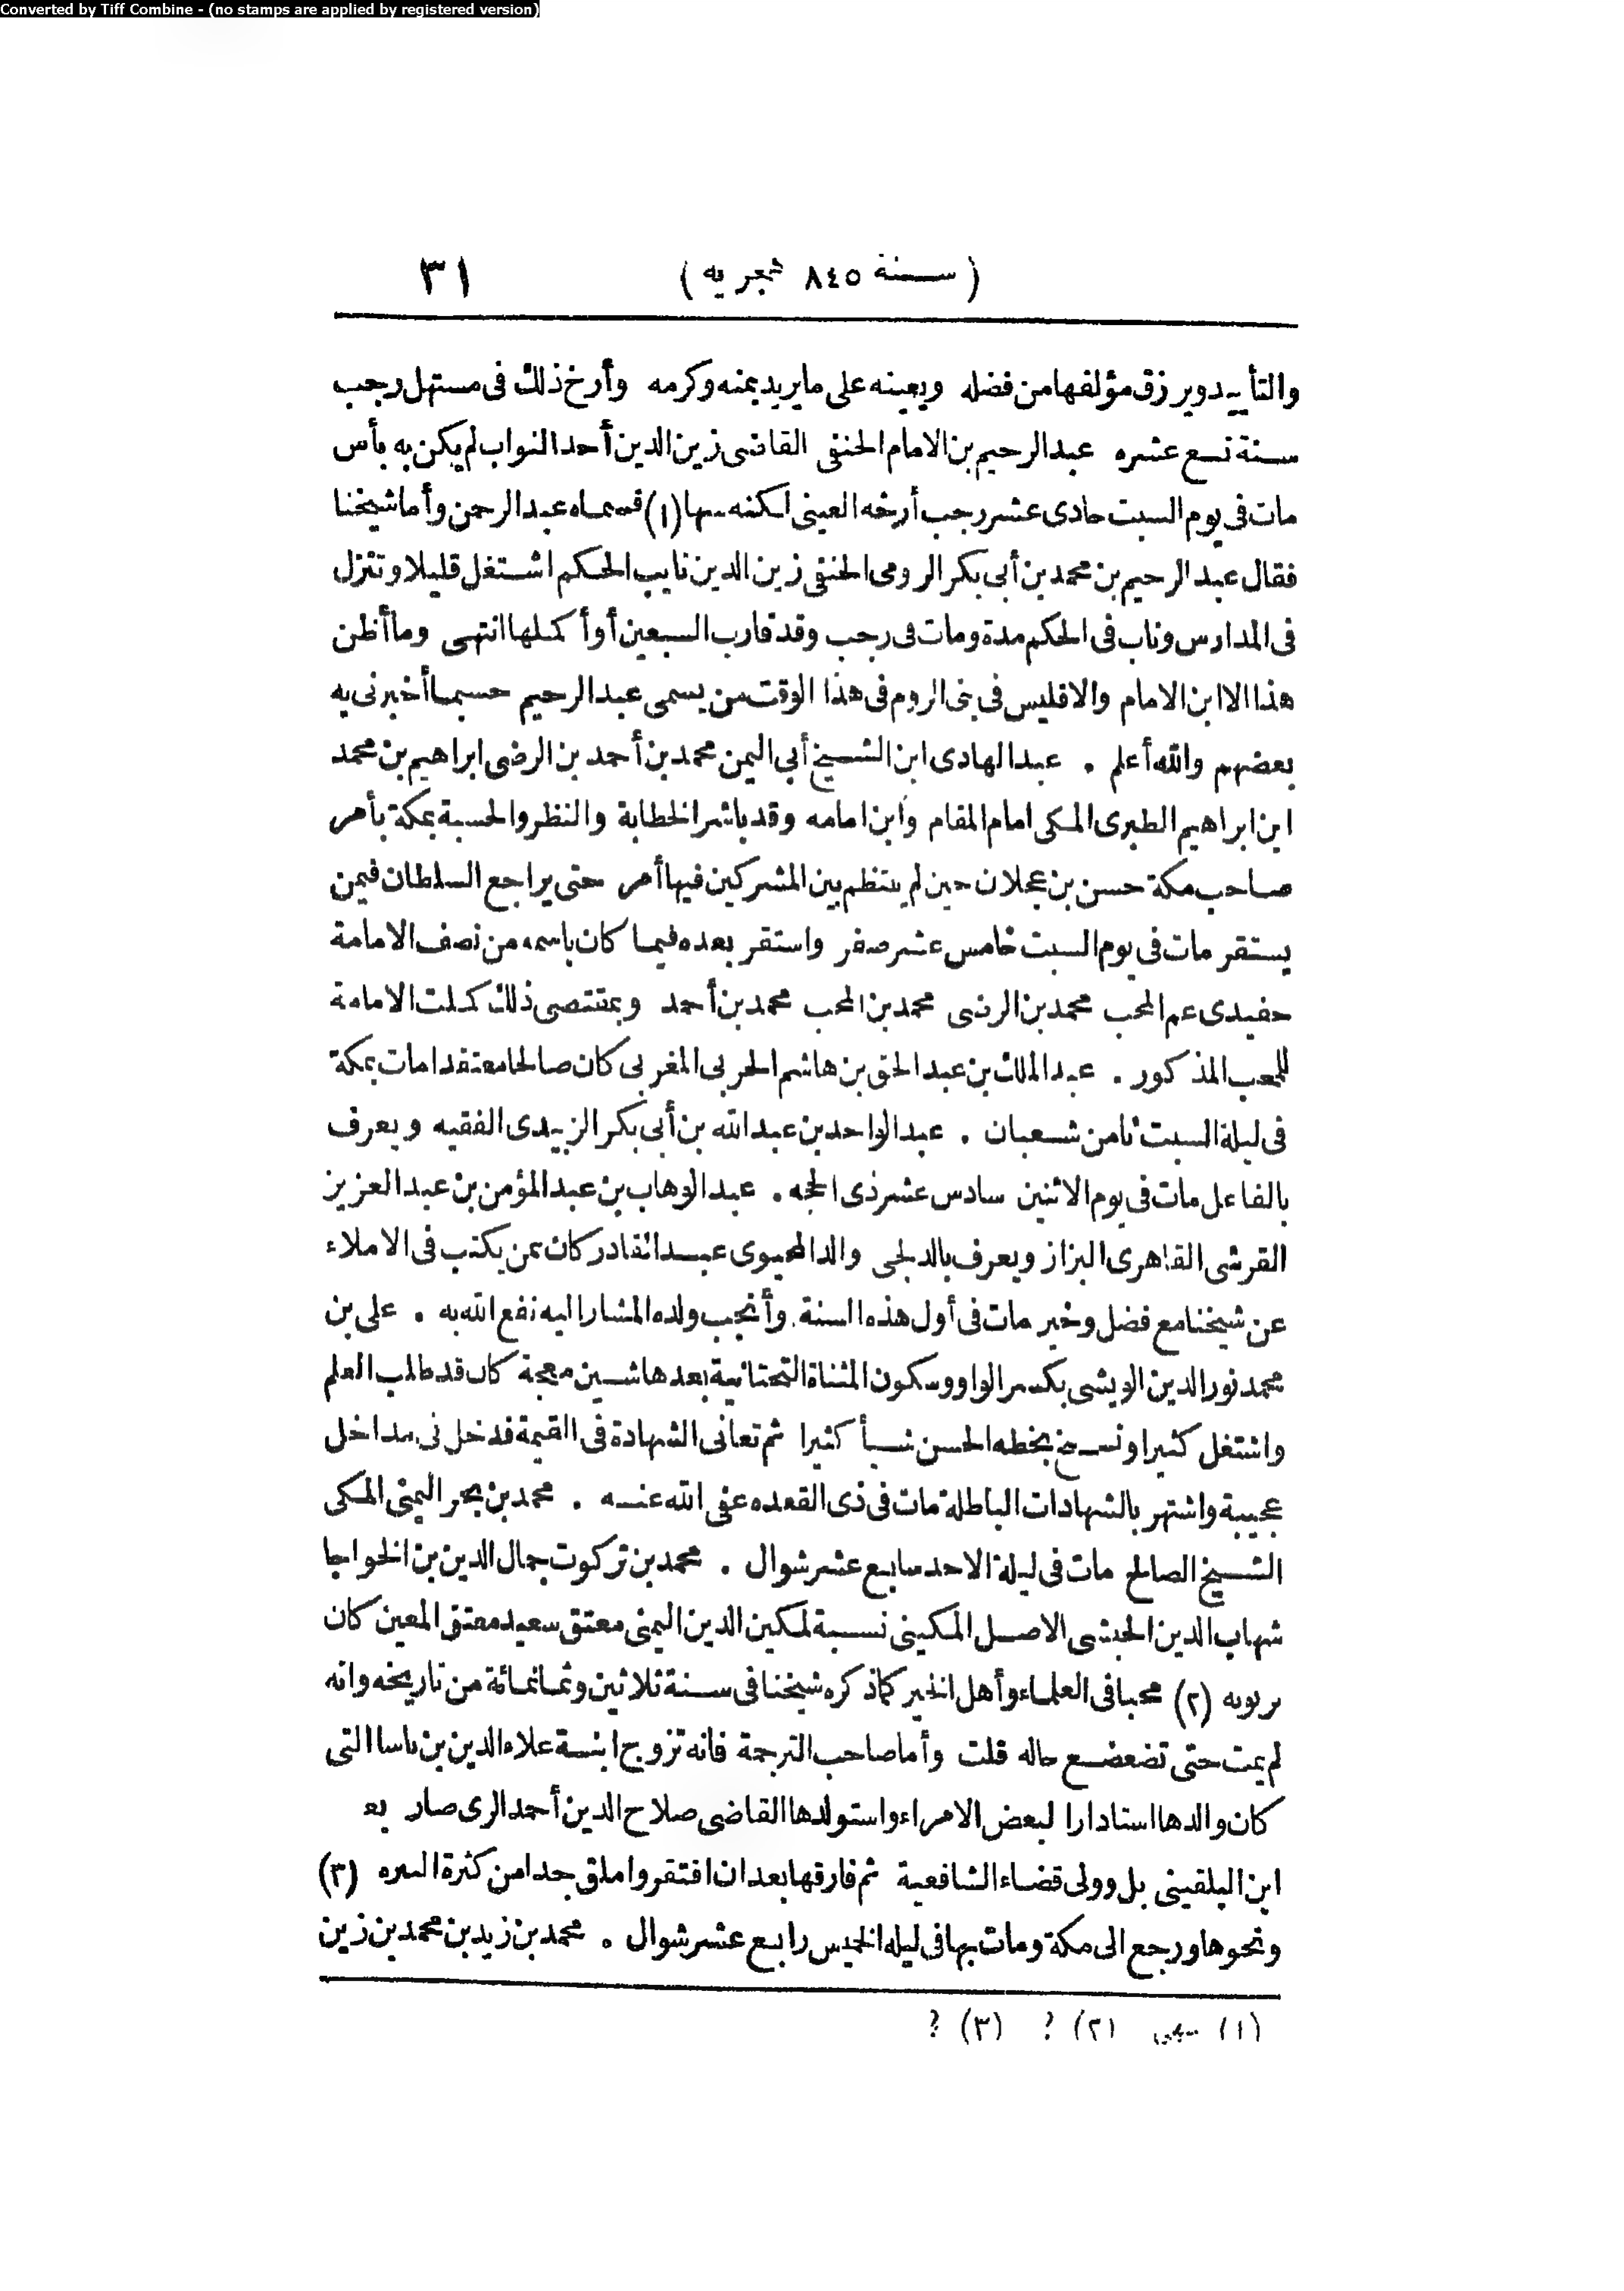 Converted by Tiff Combine - (no stamps are applied by registered version)
(سنة ٨٤٥ هجريه) ٣١
والتأييد ويرزق مؤلفها من فضله ويعينه على ما يريد بمنه وكرمه وأرخ ذلك فى مستهل رجب
سنة تسع عشره عبد الرحيم بن الامام الحنفى القاضى زين الدين أحد النواب لم يكن به بأس
مات فى يوم السبت حادى عشر رجب أرخه العينى لكنه سها (١) فسماه عبد الرحمن وأما شيخنا
فقال عبد الرحيم بن محمد بن أبى بكر الرومى الحنفى زين الدين نايب الحكم اشتغل قليلا وتنزل
فى المدارس وناب فى الحكم مدة ومات فى رجب وقد قارب السبعين أو أكملها انتهى وما أظن
هذا الا ابن الامام والا فليس فى بنى الروم فى هذا الوقت من يسمى عبد الرحيم حسبما أخبرنى به
بعضهم والله أعلم . عبد الهادى ابن الشيخ أبى اليمن محمد بن أحمد بن الرضى ابراهيم بن محمد
ابن ابراهيم الطبرى المكى امام المقام وابن امامه وقد باشر الخطابة والنظر والحسبة بمكة بأمر
صاحب مكة حسن بن عجلان حين لم ينتظم بين المشركين فيها أمر حتى يراجع السلطان فيمن
يستقر مات فى يوم السبت خامس عشر صفر واستقر بعده فيما كان باسمه من نصف الامامة
حفيدى عم المحب محمد بن الرضى محمد بن المحب محمد بن أحمد وبمقتضى ذلك كملت الامامة
للمحب المذكور . عبد الملك بن عبد الحق بن هاشم الحربى المغربى كان صالحا معتقدا مات بمكة
فى ليلة السبت ثامن شعبان . عبد الواحد بن عبد الله بن أبى بكر الزبيدى الفقيه ويعرف
بالفاعل مات فى يوم الاثنين سادس عشر ذى الحجه . عبد الوهاب بن عبد المؤمن بن عبد العزيز
القرشى القاهرى البزاز ويعرف بالدلجى والد المحيوى عبد القادر كان ممن يكتب فى الاملاء
عن شيخنا مع فضل وخير مات فى أول هذه السنة وأنجب ولده المشار اليه نفع الله به . على بن
محمد نور الدين الويشى بكسر الواو وسكون المثناة التحتانية بعدها شين معجمة كان قد طلب العلم
واشتغل كثيرا ونسخ بخطه الحسن شيأ كثيرا ثم تعانى الشهادة فى القيمة فدخل فى مداخل
عجيبة واشتهر بالشهادات الباطلة مات فى ذى القعده عفى الله عنه . محمد بن بحر اليمنى المكى
الشيخ الصالح مات فى ليلة الاحد سابع عشر شوال . محمد بن تركوت جمال الدين بن الخواجا
شهاب الدين الحبشى الاصل المكينى نسبة لمكين الدين اليمنى معتق سعيد معتق المعين كان
بربوبه (٢) محببا فى العلماء وأهل الخير كما ذكره شيخنا فى سنة ثلاثين وثمانمائة من تاريخه وانه
لم يمت حتى تضعضع حاله قلت وأما صاحب الترجمة فانه تزوج ابنسة علاء الدين بن باسا التى
كان والدها استادارا لبعض الامراء واستولدها القاضى صلاح الدين أحمد الرى صار بعـ
ابن البلقينى بل وولى قضاء الشافعية ثم فارقها بعد ان افتقر واملق جدا من كثرة السره (٣)
ونحوها ورجع الى مكة ومات بها فى ليله الخميس رابع عشر شوال . محمد بن زيد بن محمد بن زين
(١) سهى (٢) ? (٣) ?